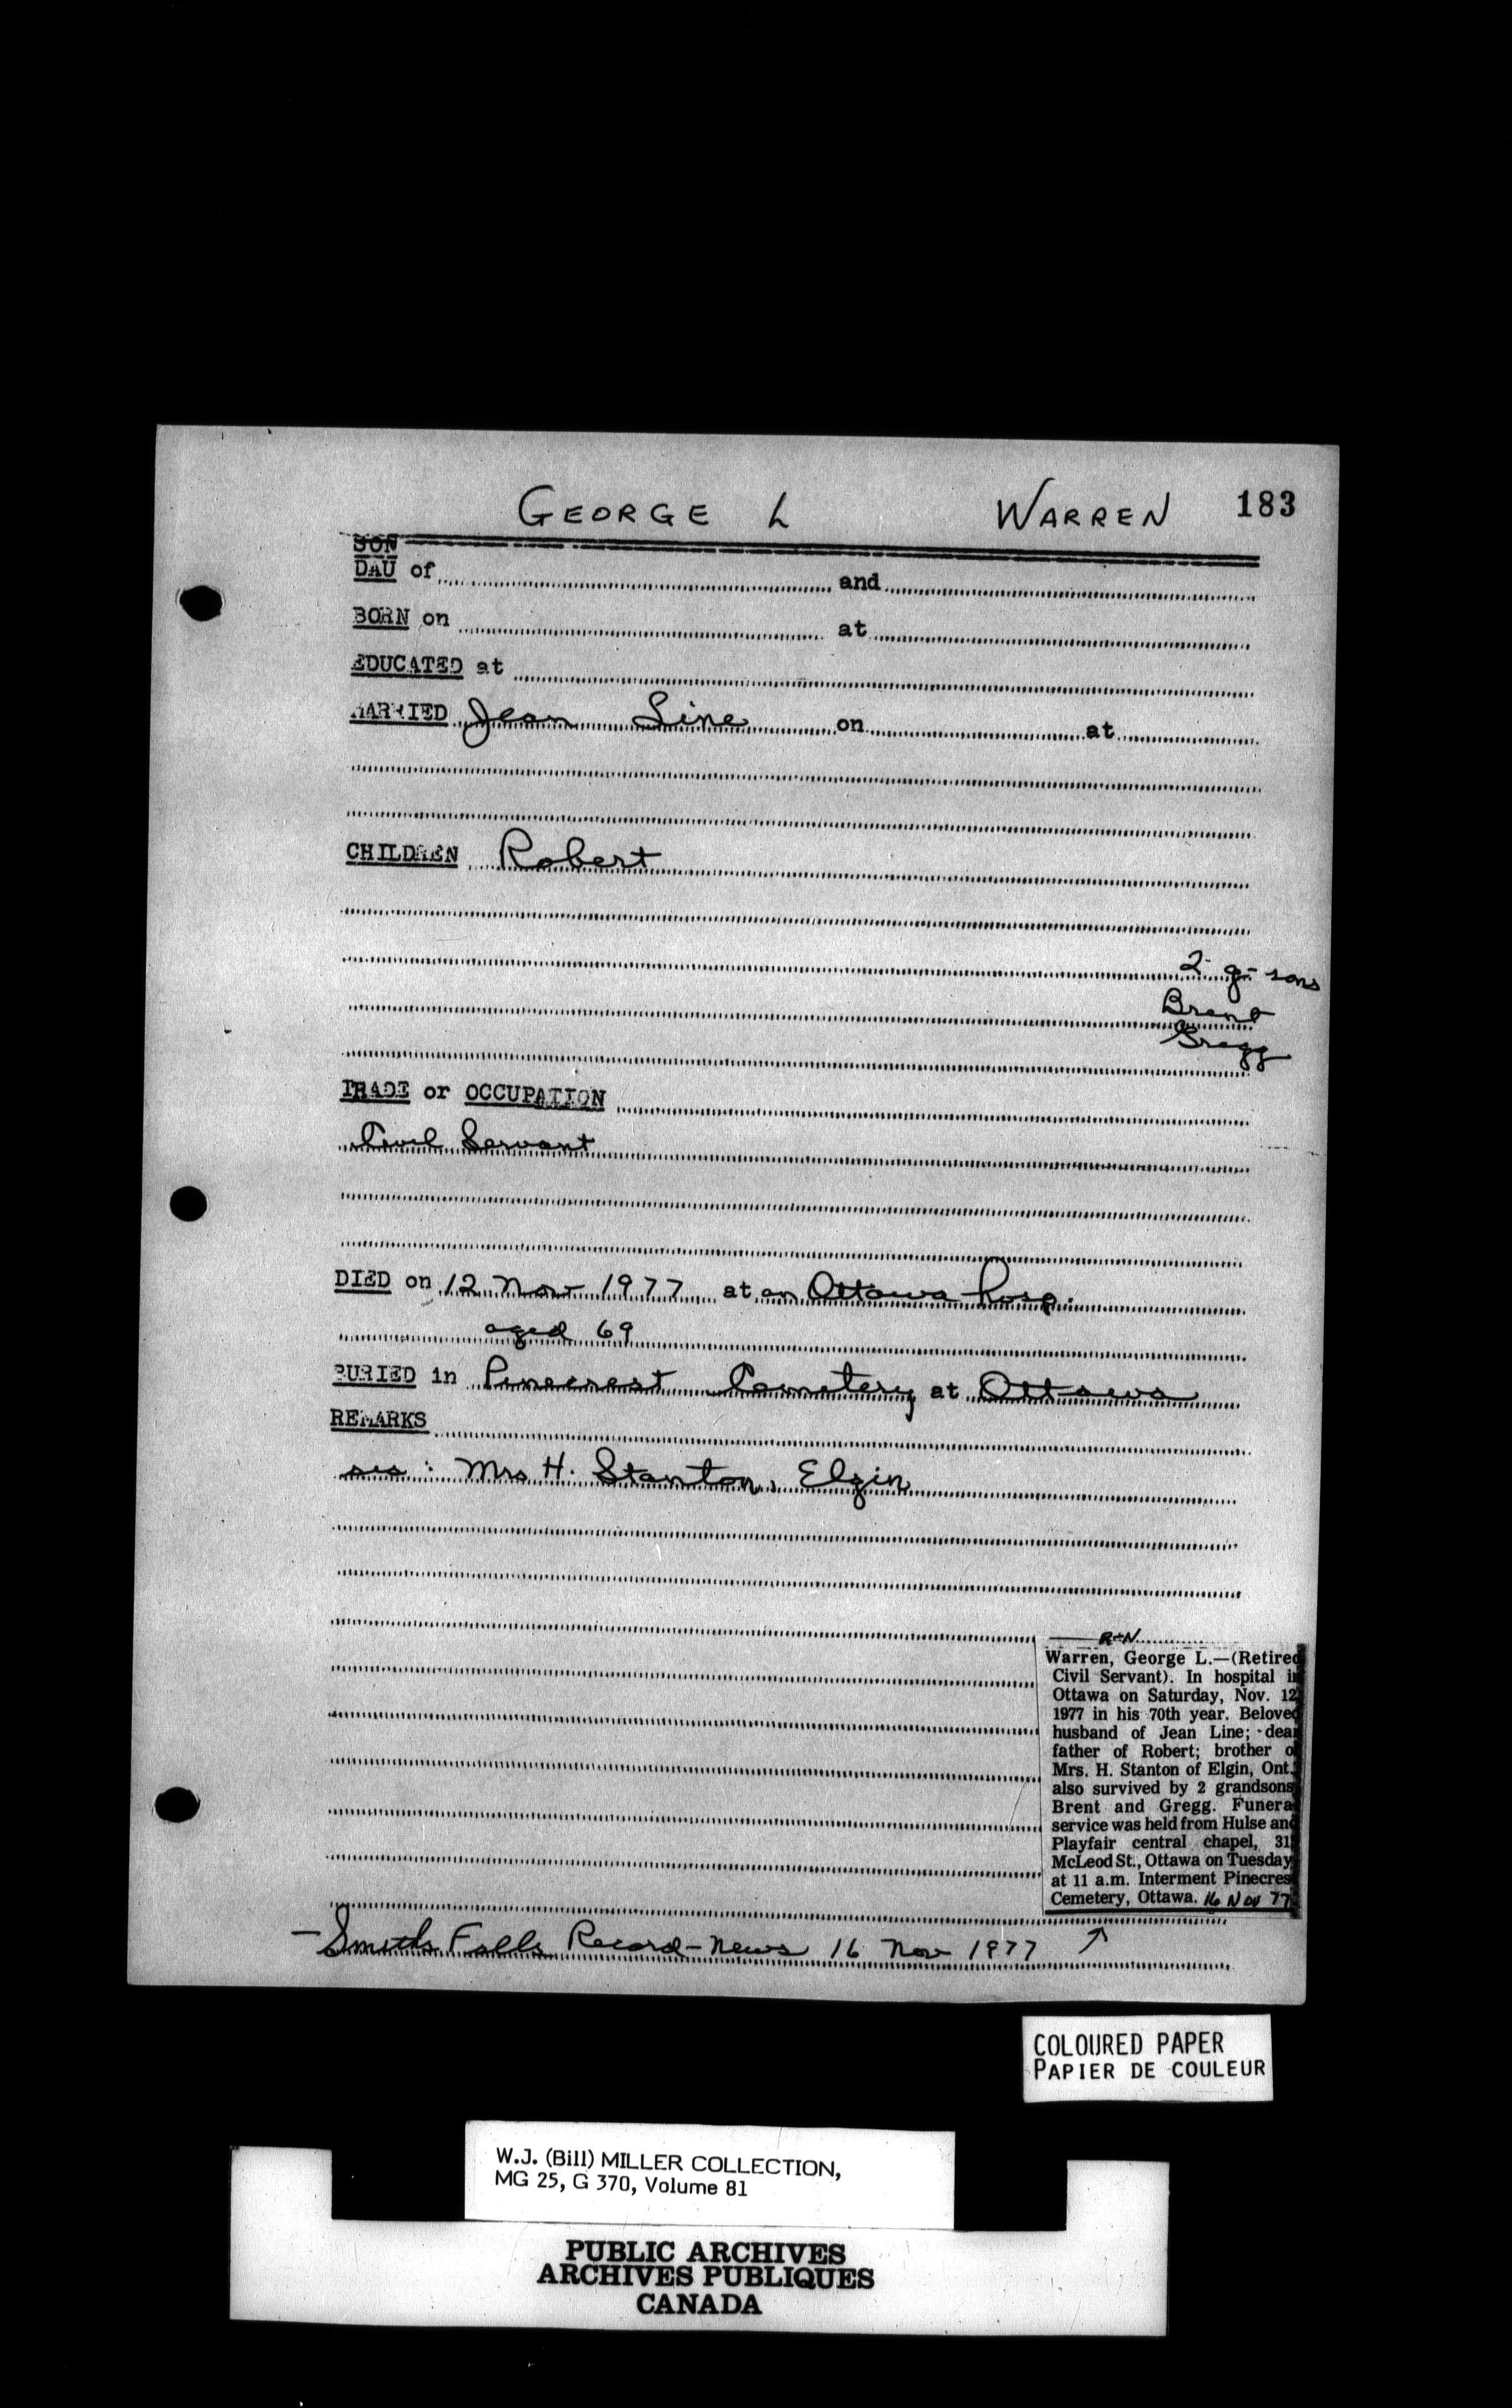 GEORGE L WARREN 183
SON
DAU of and
BORN on at
EDUCATED at
MARRIED Jean Line on at
CHILDREN Robert
2 g-sons
Brent
Gregg
TRADE or OCCUPATION
Civil Servant
DIED on 12 Nov 1977 at an Ottawa hosp.
aged 69
BURIED in Pinecrest Cemetery at Ottawa
REMARKS
sis: Mrs H. Stanton, Elgin
R-N
Warren, George L.—(Retired
Civil Servant). In hospital in
Ottawa on Saturday, Nov. 12
1977 in his 70th year. Beloved
husband of Jean Line; dear
father of Robert; brother o
Mrs. H. Stanton of Elgin, Ont.
also survived by 2 grandsons
Brent and Gregg. Funera
service was held from Hulse and
Playfair central chapel, 31
McLeod St., Ottawa on Tuesday
at 11 a.m. Interment Pinecres
Cemetery, Ottawa. 16 Nov 77
- Smiths Falls Record-News 16 Nov 1977 ↗
COLOURED PAPER
PAPIER DE COULEUR
W.J. (Bill) MILLER COLLECTION,
MG 25, G 370, Volume 81
PUBLIC ARCHIVES
ARCHIVES PUBLIQUES
CANADA